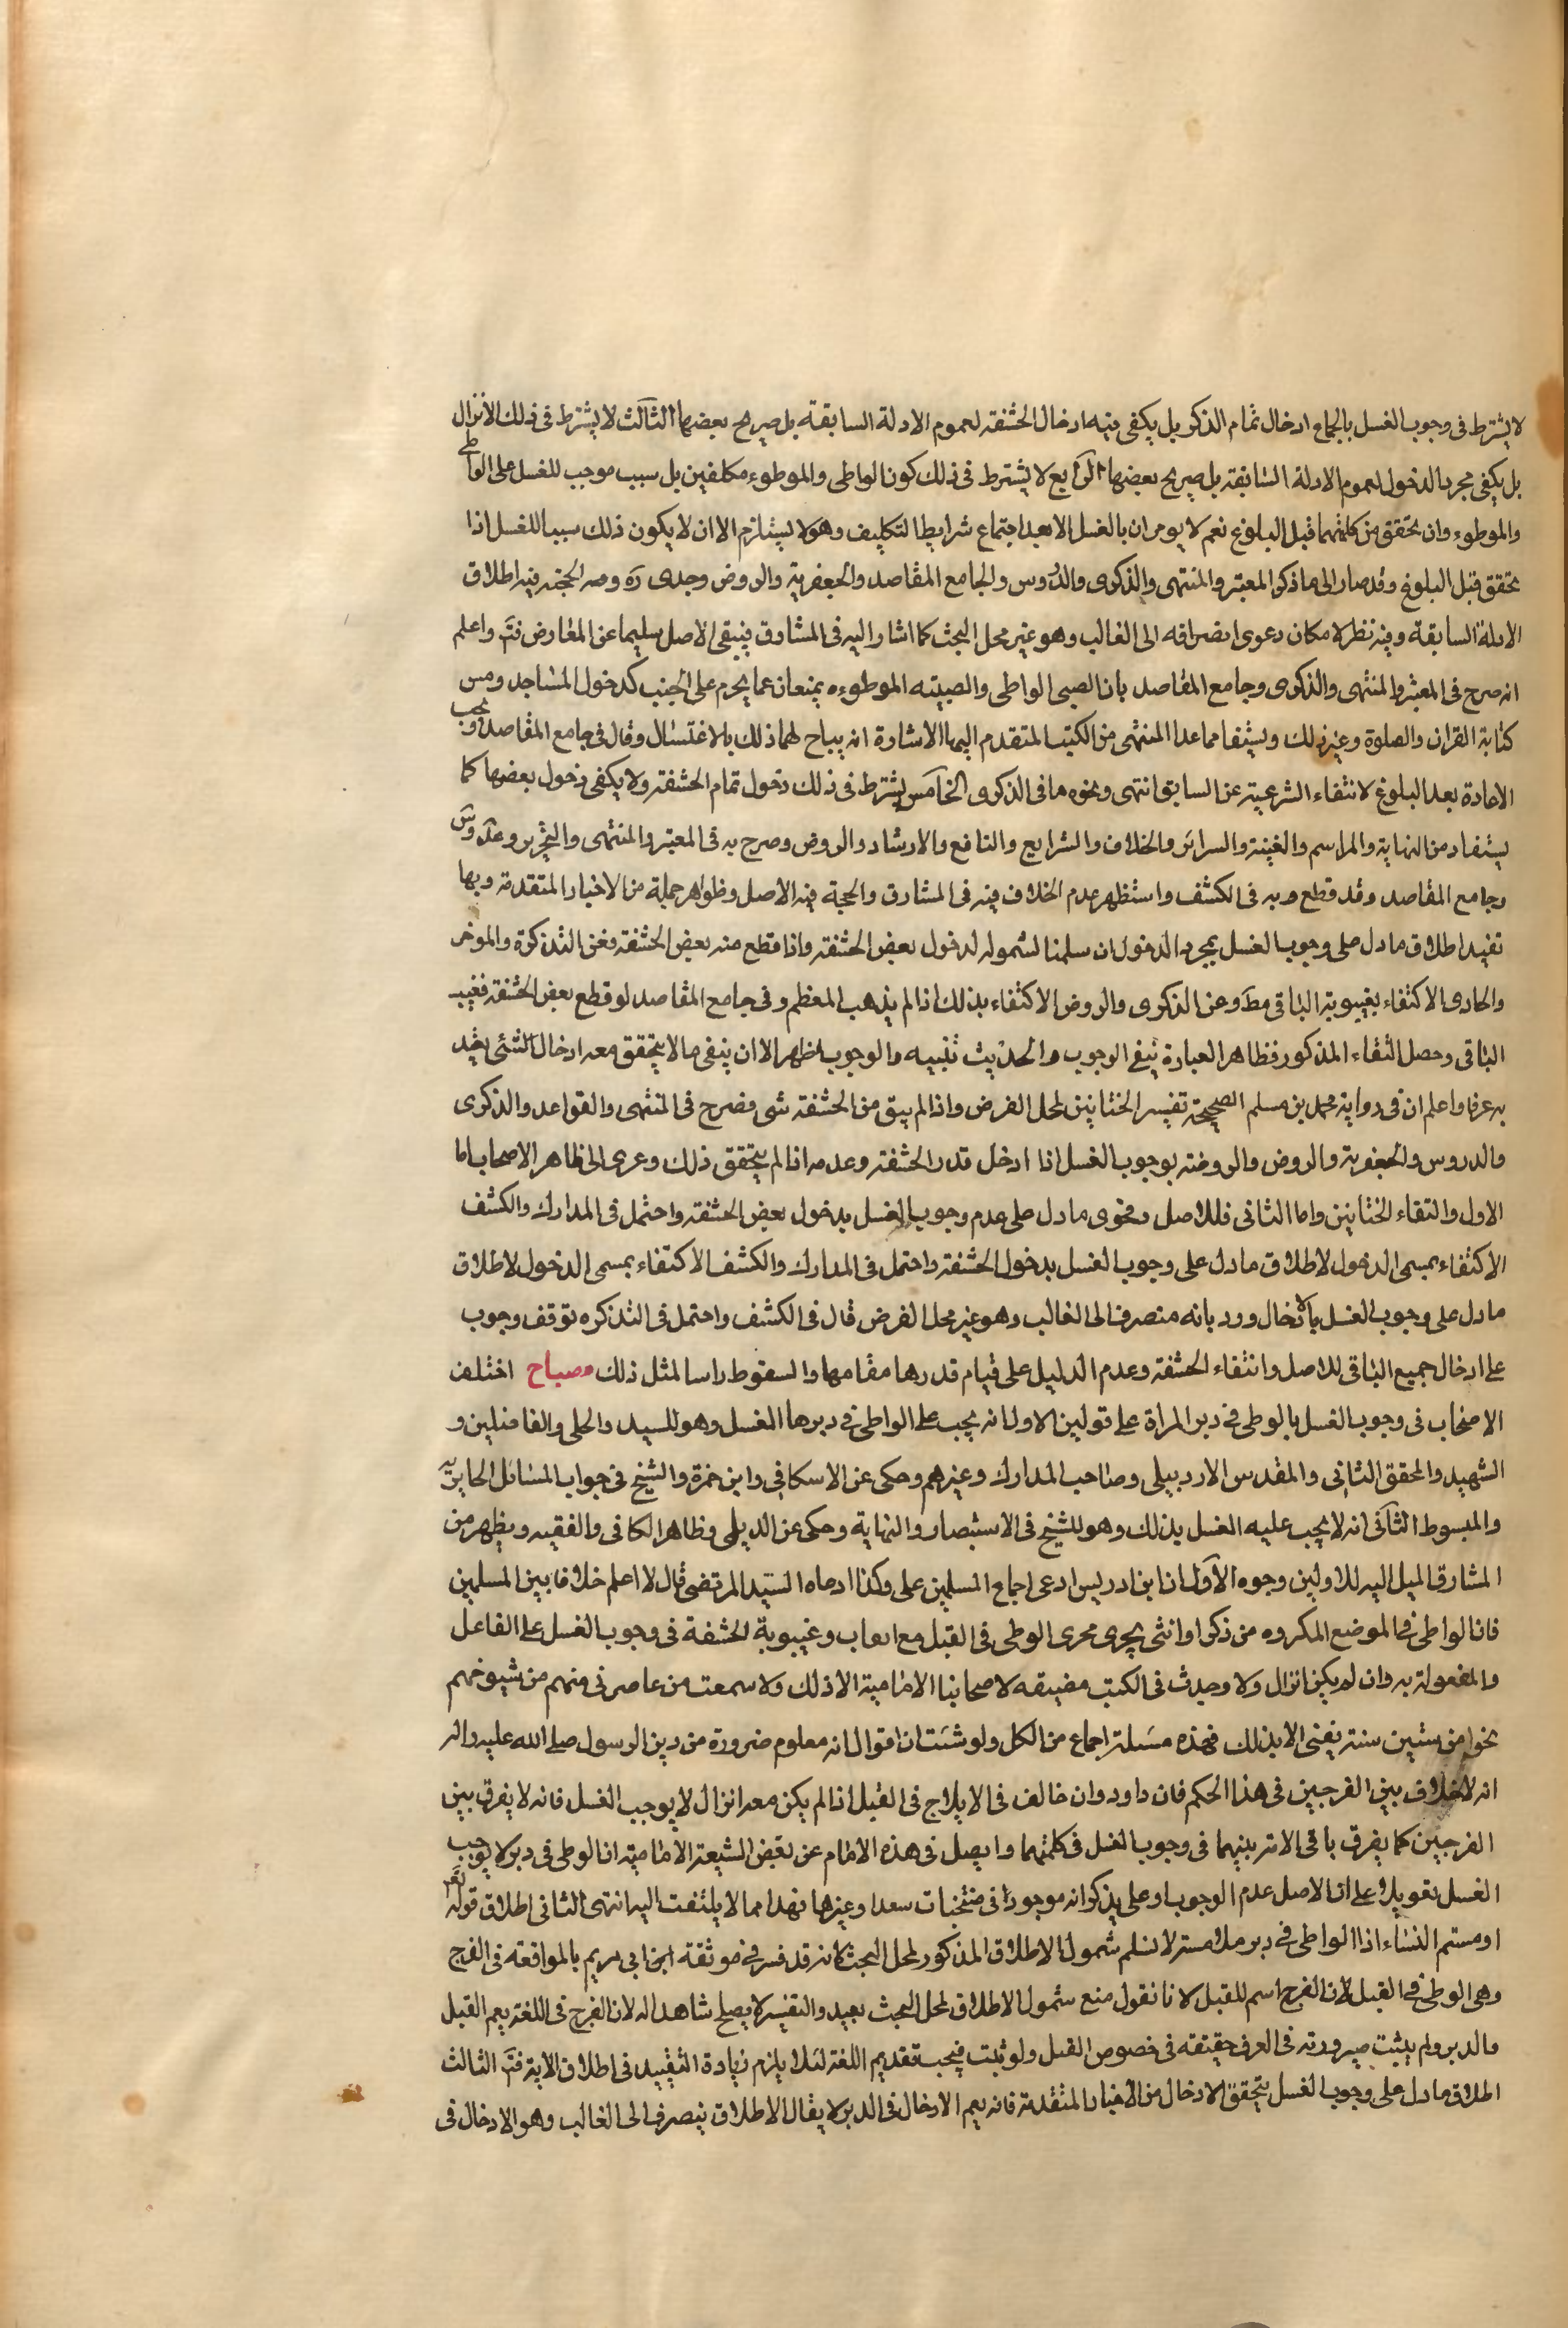 لا يشترط فى وجوب الغسل بالجماع ادخال تمام الذكر بل يكفى فيه ادخال الحشفة لعموم الادلة السابقة بل صريح بعضها الثالث لا يشترط فى ذلك الانزال
بل يكفى مجرد الدخول لعموم الادلة السابقة بل صريح بعضها الرابع لا يشترط فى ذلك كون الواطى والموطوء مكلفين بل سبب موجب للغسل على الواطى
والموطوء وان تحقق من كليهما قبل البلوغ نعم لا يومران بالغسل الا بعد اجتماع شرايط التكليف وهو لا يستلزم الا ان لا يكون ذلك سببا للغسل اذا
تحقق قبل البلوغ وقد صار الى ما ذكر المعتبر والمنتهى والذكرى والدروس والجامع المقاصد والجعفرية والروض وجدى ره ومر الحجة فيه اطلاق
الادلة السابقة وفيه نظر لامكان دعوى انصرافه الى الغالب وهو غير محل البحث كما اشار اليه فى المشارق فيبقى الاصل سليما عن المعارض فتم واعلم
انه صرح فى المعتبر والمنتهى والذكرى وجامع المقاصد بان الصبى الواطى والصبيته الموطوءه يمنعان عما يحرم على الجنب كدخول المساجد ومس
كتابة القران والصلوة وغير ذلك ويستفا مما عدا المنتهى من الكتب المتقدم اليها الاشارة انه يباح لهما ذلك بالاغتسال وقال فى جامع المقاصد وتجب
الاعادة بعد البلوغ لانتفاء الشرعية عن السابق انتهى ونحوه ما فى الذكرى الخامس يشترط فى ذلك دخول تمام الحشفة ولا يكفى دخول بعضها كما
يستفاد من النهاية والمراسم والغنية والسرائر والخلاف والشرايع والنافع والارشاد والروض وصرح به فى المعتبر والمنتهى والتحرير وعد وس
وجامع المقاصد وقد قطع به فى الكشف واستظهر عدم الخلاف فيه فى المشارق والحجة فيه الاصل وظواهر جملة من الاخبار المتقدمة وبها
تقيد اطلاق ما دل على وجوب الغسل بمجرد الدخول ان سلمنا لشموله لدخول بعض الحشفة واذا قطع منه بعض الحشفة فعن التذكرة والموخر
والحاوى الاكتفاء بغيبوبة الباقى مط وعن الذكرى والروض الاكتفاء بذلك اذا لم يذهب المعظم وفى جامع المقاصد لو قطع بعض الحشفة فغيب
الباقى وحصل التقاء المذكور فظاهر العبارة نفى الوجوب والحديث تنبيه والوجوب اظهر الا ان يبقى ما لا يتحقق معه ادخال الشئ يعتد
به عرفا واعلم ان فى رواية محمد بن مسلم الصحيحة تفسير الختانين لمحل الفرض واذا لم يبق من الحشفة شى فصرح فى المنتهى والقواعد والذكرى
والدروس والجعفرية والروض والروضة بوجوب الغسل اذا ادخل قدر الحشفة وعدمه اذا لم يتحقق ذلك وعزى الى ظاهر الاصحاب اما
الاول والتقاء الختانين واما الثانى فللاصل وفحوى ما دل على عدم وجوب الغسل بدخول بعض الحشفة واحتمل فى المدارك والكشف
الاكتفاء بمسمى الدخول لاطلاق ما دل على وجوب الغسل بدخول الحشفة واحتمل فى المدارك والكشف الاكتفاء بمسمى الدخول لاطلاق
ما دل على وجوب الغسل بالادخال ورد بانه منصرف الى الغالب وهو غير محل الفرض قال فى الكشف واحتمل فى التذكره توقف وجوب
على ادخال جميع الباقى للاصل وانتفاء الحشفة وعدم الدليل على قيام قدرها مقامها والسقوط راسا لمثل ذلك مصباح اختلف
الاصحاب فى وجوب الغسل بالوطى فى دبر المراة على قولين الاول انه يجب على الواطى فى دبرها الغسل وهو للسيد والحلى والفاضلين و
الشهيد والمحقق الثانى والمقدس الاردبيلى وصاحب المدارك وغيرهم وحكى عن الاسكافى وابن حمزة والشيخ فى جواب المسائل الحايرية
والمبسوط الثانى انه لا يجب عليه الغسل بذلك وهو للشيخ فى الاستبصار والنهاية وحكى عن الديلمى وظاهر الكافى والفقيه ويظهر من
المشارق الميل اليه للاولين وجوه الاول ان ابن ادريس ادعى اجماع المسلمين على وكذا ادعاه السيد المرتضى قال لا اعلم خلافا بين المسلمين
فان الواطى فى الموضع المكروه من ذكر او انثى يجرى مجرى الوطى فى القبل مع ايعاب وغيبوبة الحشفة فى وجوب الغسل على الفاعل
والمفعولة به وان لم يكن انزال ولا وجدت فى الكتب مضيقه لاصحابنا الامامية الا ذلك ولا سمعت من عاصرنى منهم من شيوخهم
نحوا من ستين سنة يفتى الا بذلك فهذه مسئلة اجماع من الكل ولو شئت ان اقول انه معلوم ضرورة من دين الرسول صلى الله عليه واله
انه لا خلاف بين الفرجين فى هذا الحكم فان داود وان خالف فى الايلاج فى القبل اذا لم يكن معه انزال لا يوجب الغسل فانه لا يفرق بين
الفرجين كما يفرق باقى الامة بينهما فى وجوب الغسل فى كلتيهما وايصل فى هذه الامام عن بعض الشيعة الامامية ان الوطى فى دبر لا يوجب
الغسل تعويلا على ان الاصل عدم الوجوب او على يذكر انه موجود فى منتخبات سعد او غيرها فهذا مما لا يلتفت اليه انتهى الثانى اطلاق قوله تعالى
او مستم النساء اذا الواطى فى دبر ملامستر لا نسلم شمول الاطلاق المذكور لمحل البحث لانه قد فسر فى موثقة ابن ابى مريم بالمواقعة فى الفرج
وهى الوطى فى القبل لان الفرج اسم للقبل لانا نقول منع شمول الاطلاق لمحل البحث بعيد والتفسير لا يصلح شاهدا له لان الفرج فى اللغة يعم القبل
والدبر ولم يثبت صيرورته فى العرف حقيقة فى خصوص القبل ولو ثبت فيجب تقديم اللغة لئلا يلزم زيادة التقييد فى اطلاق الاية فتم الثالث
اطلاق ما دل على وجوب الغسل بتحقق الادخال من الاخبار المتقدمة فانه يعم الادخال فى الدبر لا يقال الاطلاق ينصرف الى الغالب وهو الادخال فى